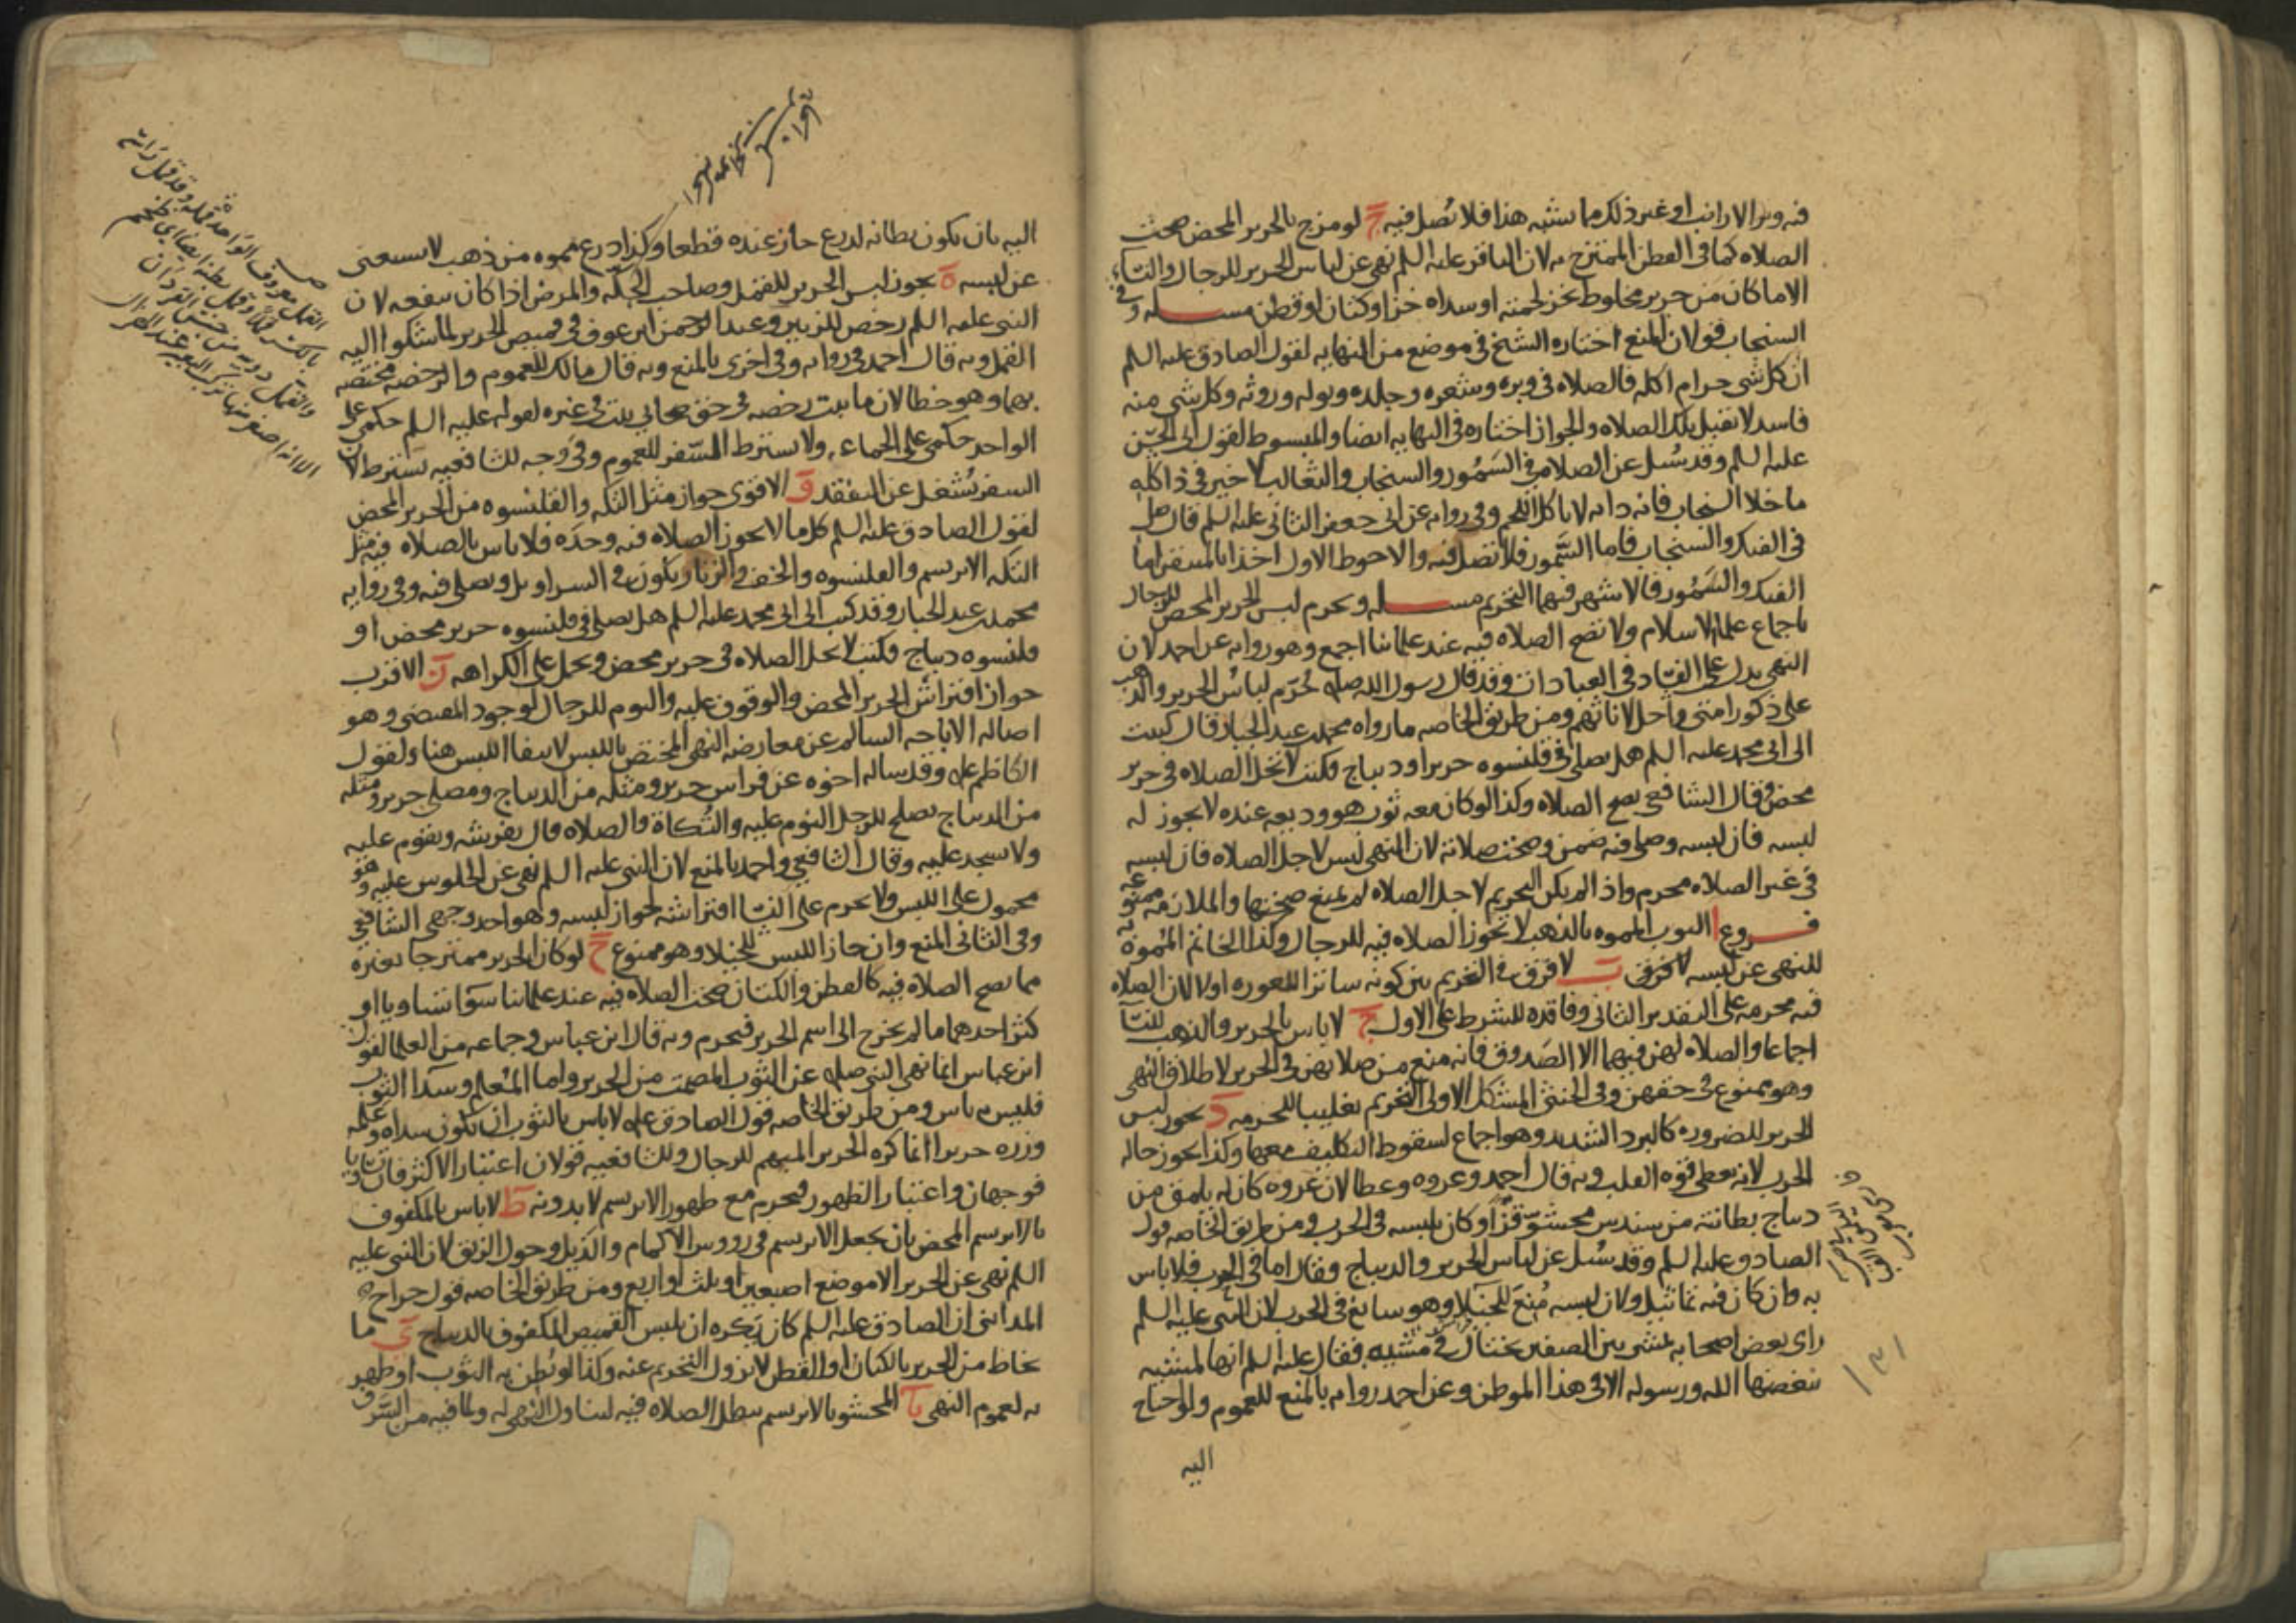 فيه وبر الارانب او غير ذلك مما يشبه هذا فلا تصل فيه ج لو مزج بالحرير المحض صحت
الصلاه كما في القطن الممتزج به لان الباقر عليه السلم نهى عن لباس الحرير للرجال والنساء
الا ما كان من حرير مخلوط بخز لحمته او سداه خز او كتان او قطن مسـله وفي
السنجاب قولان المنع اختاره الشيخ في موضع من النهايه لقول الصادق عليه السلم
ان كل شي حرام اكله فالصلاه في وبره وشعره وجلده وبوله وروثه وكل شي منه
فاسد لا تقبل تلك الصلاه والجواز اختاره في النهايه ايضا والمبسوط لقول ابي الحسن
عليه السلم وقد سُئل عن الصلاه في السَمُور والسنجاب والثعالب لا خير في ذا كله
ما خلا السنجاب فانه دابه لا ياكل اللحم وفي روايه عن ابي جعفر الثاني عليه السلم قال صل
في الفنك والسنجاب فاما السَّمور فلا تصل فيه والاحوط الاول اخذا بالمتيقن اما
الفنك والسَمُور فالاشهر فيهما التحريم مسـله ويحرم لبس الحرير المحض للرجال
باجماع علماء الاسلام ولا تصح الصلاه فيه عند علمائنا اجمع وهو روايه عن احمد لان
النهي يدل على الفساد في العبادات وقد قال رسول الله صله حُرّم لباسُ الحرير والذهب
على ذكور امتي واحل لاناثهم ومن طريق الخاصه ما رواه محمد بن عبد الجبار قال كتبت
الى ابي محمد عليه السلم هل يصلى في قلنسوه حرير او ديباج فكتب لا تحل الصلاه في حرير
محض وقال الشافعي تصح الصلاه وكذا لو كان معه ثوب هو وديعه عنده لا يجوز له
لبسه فان لبسه وصلى فيه ضمن وصحت صلاته لان النهي ليس لاجل الصلاه فان لبسه
في غير الصلاه محرم واذا لم يكن التحريم لاجل الصلاه لم يمنع صحتها والملازمه ممنوعه
فـروع ا الثوب المموه بالذهب لا تجوز الصلاه فيه للرجال وكذا الخاتم المُموه به
للنهي عن لبسه لا فرق ب لا فرق في التحريم بين كونه ساترا للعوره او لا لان الصلاه
فيه محرمه على التقدير الثاني وفاقده للشرط على الاول ج لا باس بالحرير والذهب للنسا
اجماعا والصلاه لهن فيهما الا الصَدوق فانه منع من صلاتهن في الحرير لاطلاق النهي
وهو ممنوع في حقهن وفي الخنثى المشكل الاولى التحريم تغليبا للحرمه د يجوز لبس
الحرير للضروره كالبرد الشديد وهو اجماع لسقوط التكليف معها وكذا يجوز حاله
الحرب لانه يعطي قوه القلب وبه قال احمد وعروه وعطا لان عُروه كان له يلمق من
ديباج بطانته من سندس محشوّ قزًا وكان يلبسه في الحرب ومن طريق الخاصه قول
الصادق عليه السلم وقد سُئل عن لباس الحرير والديباج وفقال اما في الحرب فلا باس
به وان كان فيه تماثيل ولان لبسه مُنعَ للخيلا وهو سايغ في الحرب لان النبي عليه السلم
راى بعض اصحابه يمشي بين الصفين يختال في مشيه فقال عليه السلم انها لمشيه
يبغضها الله ورسوله الا في هذا الموطن وعن احمد روايه بالمنع للعموم ولو احتاج
اليه
١٣١
اليه بان يكون بطانه لدرع جاز عنده قطعا وكذا درع مموه من ذهب لا يستغني
عن لبسه ه يجوز لبس الحرير للقمل وصاحب الحكّه والمرض اذا كان ينفعه لان
النبي عليه السلم رخص للزبير وعبد الرحمن ابن عوف في قميص الحرير لما شكوا اليه
القمل وبه قال احمد في روايه وفي اخرى بالمنع وبه قال مالك للعموم والرخصه مختصه
بهما وهو خطا لان ما يثبت رخصه في حق صحابي يثبت في غيره لقوله عليه السلم حكمي على
الواحد حكمي على الجماعه ولا يشترط السّفر للعموم وفي وجه للشافعيه يشترط لان
السفر يُشغل عن التفقد و الاقوى جواز مثل التكه والقلنسوه من الحرير المحض
لقول الصادق عليه السلم كل ما لا يجوز الصلاه فيه وحده فلا باس بالصلاه فيه مثل
التكه الابريسم والقلنسوه والخف والزنار يكون في السراويل ويصلى فيه وفي روايه
محمد بن عبد الجبار وقد كتب الى ابي محمد عليه السلم هل يصلى في قلنسوه حرير محض او
قلنسوه ديباج فكتب لا تحل الصلاه في حرير محض ويحمل على الكراهه ز الاقرب
جواز افتراش الحرير المحض والوقوف عليه والنوم للرجال لوجود المقتضي وهو
اصاله الاباحه السالم عن معارضه النهي المختص باللبس لانتفا اللبس هنا ولقول
الكاظم عله وقد ساله اخوه عن فراش حرير ومثله من الديباج ومصلى حرير ومثله
من الديباج يصلح للرجل النوم عليه والتُكاة والصلاه قال يفرشه ويقوم عليه
ولا يسجد عليه وقال الشافعي واحمد بالمنع لان النبي عليه السلم نهى عن الجلوس عليه وهو
محمول على اللبس ولا يحرم على النسا افتراشه لجواز لبسه وهو احد وجهي الشافعي
وفي الثاني المنع وان جاز اللبس للخيلا وهو ممنوع ح لو كان الحرير ممتزجا بغيره
مما تصح الصلاه فيه كالقطن والكتان صحت الصلاه فيه عند علمائنا سوا تساويا او
كثر احدهما ما لم يخرج الى اسم الحرير فيحرم وبه قال ابن عباس وجماعه من العلما لقول
ابن عباس انما نهى النبي صله عن الثوب المصمت من الحرير واما المُعلم وسدا الثوب
فليس به باس ومن طريق الخاصه قول الصادق عله لا باس بالثوب ان يكون سداه وعلمه
وزره حريرا انما كره الحرير المبهم للرجال وللشافعيه قولان اعتبار الاكثر فان تساويا
فوجهان واعتبار الظهور فيحرم مع ظهور الابريسم لا بدونه ط لا باس بالمكفوف
بالابريسم المحض بان يجعل الابريسم في رووس الاكمام والذيل وحول الزيق لان النبي عليه
السلم نهى عن الحرير الا موضع اصبعين او ثلث او اربع ومن طريق الخاصه قول جراح
المدائني ان الصادق عليه السلم كان يَكره ان يلبس القميص المكفوف بالديباج ي ما
يخاط من الحرير بالكتان او القطن لا يزول التحريم عنه وكذا لو بُطن به الثوب او ظهر
به لعموم النهي يا المحشو بالابريسم يبطل الصلاه فيه لتناول النهي له ولما فيه من السَرف